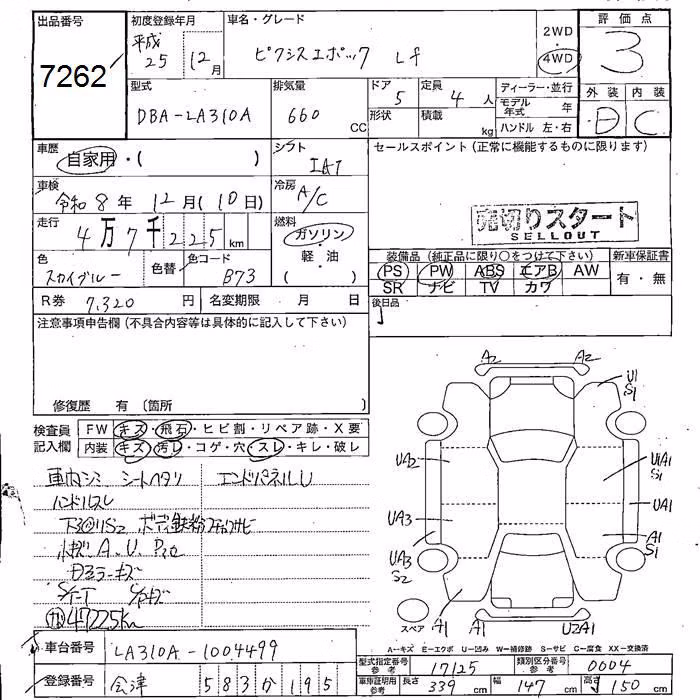 出品番号 初度登録年月 車名・グレード 2WD 評価点
7262 平成 25 12月 ピクシスエポック Lf 4WD 3
型式 排気量 ドア 定員 ディーラー・並行 外装 内装
DBA-LA310A 660 CC 5 4人 モデル年式 年 D C
形状 積載 kg ハンドル 左・右
車歴 自家用・( ) シフト IAT セールスポイント(正常に機能するものに限ります)
車検 令和8年12月(10日) 冷房 A/C
走行 4万7千225km 燃料 ガソリン・軽油( )
売切りスタート
SELLOUT
色 スカイブルー 色替 色コード B73
装備品(純正品に限り○をつけて下さい) 新車保証書
PS PW ABS エアB AW 有・無
SR ナビ TV カワ
R券 7,320円 名変期限 月 日 後日品
注意事項申告欄(不具合内容等は具体的に記入して下さい)
修復歴 有 (箇所 )
検査員記入欄 FW キズ・飛石・ヒビ割・リペア跡・X要
内装 キズ・汚レ・コゲ・穴・スレ・キレ・破レ
車内シミ シートヘタリ エンドパネルU
ハンドルスレ
小キズ A.U.
47225km
A2 A2
U1 S1
UA2 UA1 S1
UA3 UA1
UA3 S2 A1 S1
スペア A1 A1 U2A1
A-キズ E-エクボ U-凹み W-補修跡 S-サビ C-腐食 XX-交換済
車台番号 LA310A-1004499
型式指定番号 参考 17125 類別区分番号 参考 0004
登録番号 会津 583 か 195
車庫証明用参考 長さ 339cm 幅 147cm 高さ 150cm